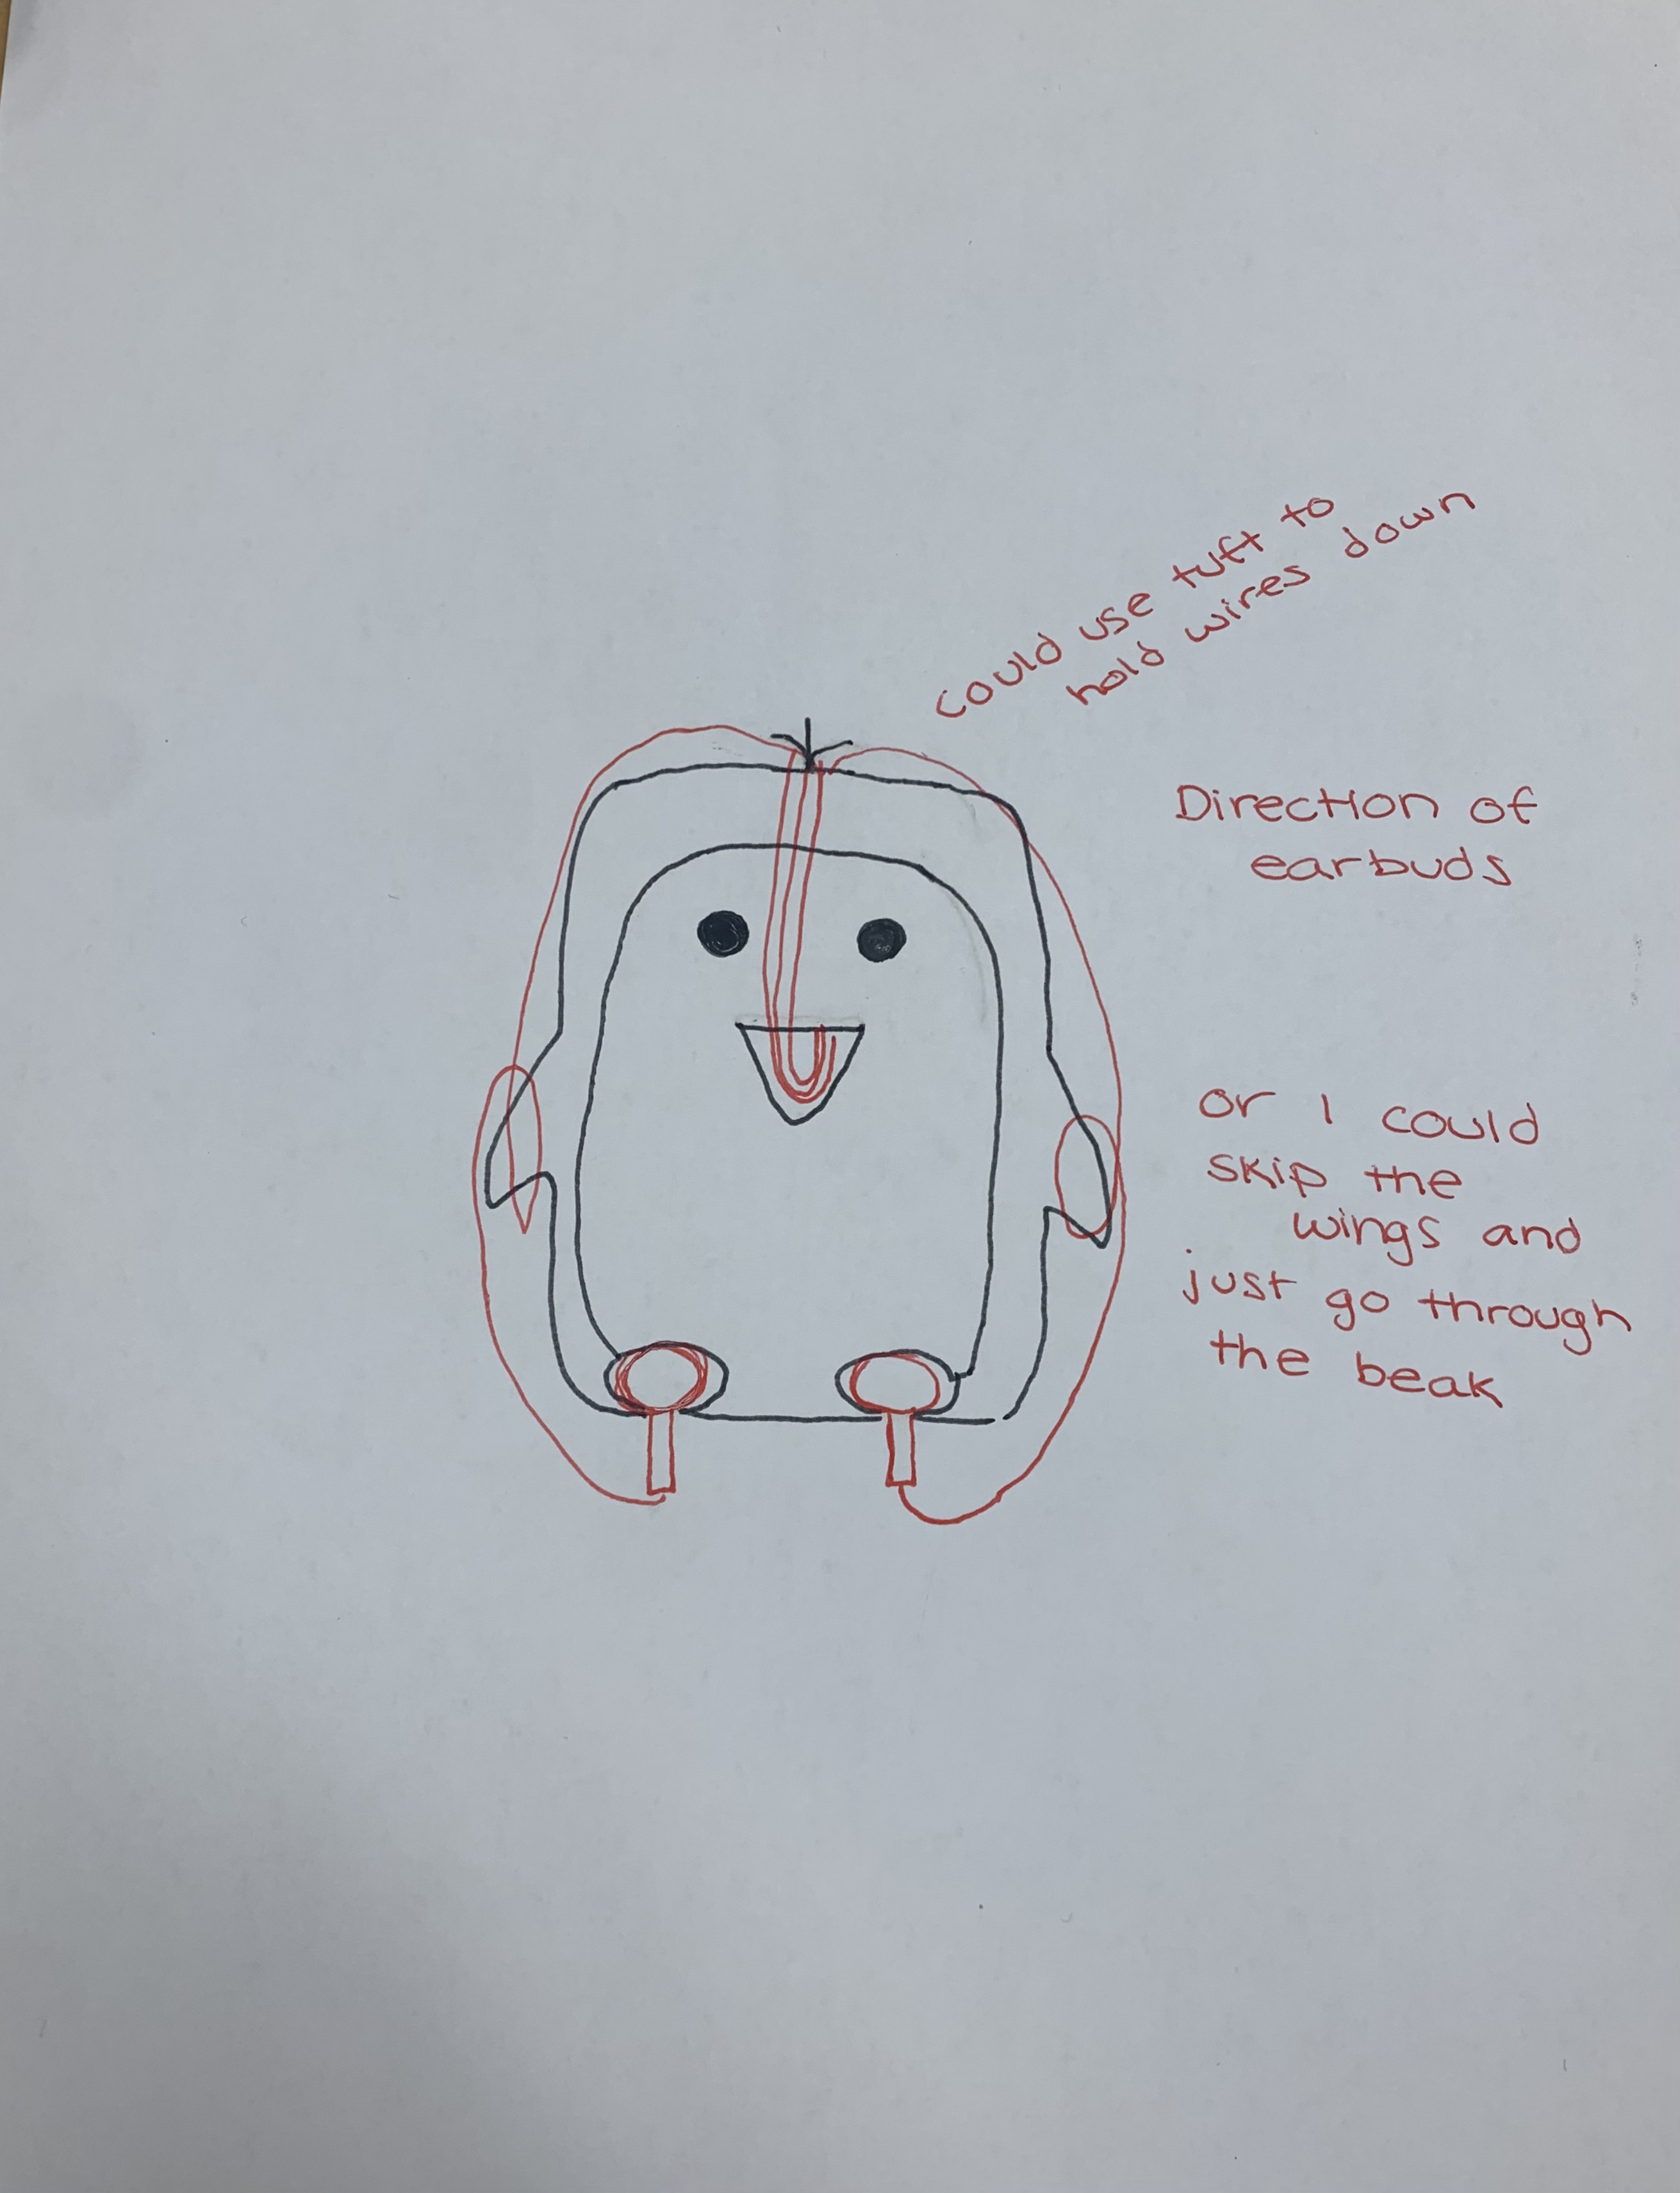 could use tuft to
hold wires down
Direction of
earbuds
or I could
skip the
wings and
just go through
the beak